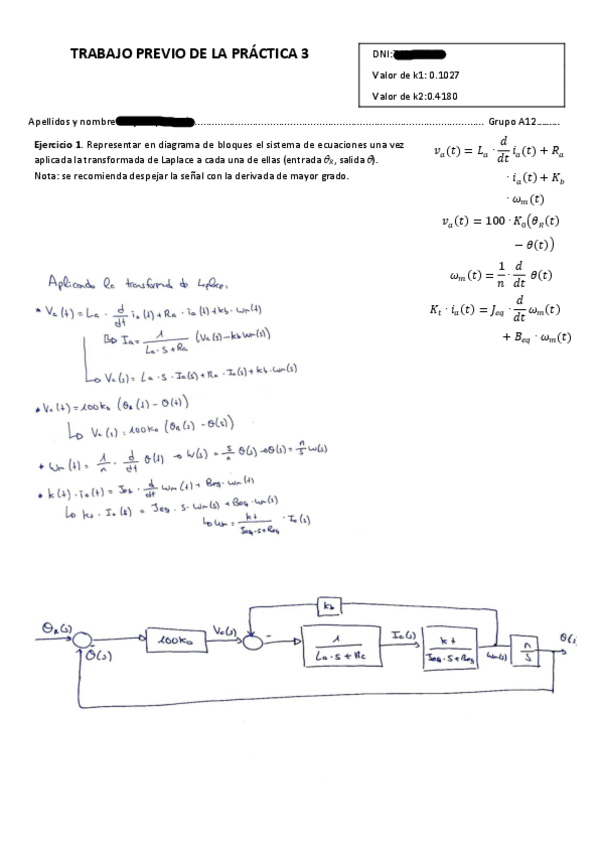 TRABAJO PREVIO DE LA PRÁCTICA 3
DNI:
Valor de k1: 0.1027
Valor de k2:0.4180
Apellidos y nombre Grupo A12
Ejercicio 1. Representar en diagrama de bloques el sistema de ecuaciones una vez
aplicada la transformada de Laplace a cada una de ellas (entrada θ_R, salida θ).
Nota: se recomienda despejar la señal con la derivada de mayor grado.
v_a(t) = L_a · d/dt i_a(t) + R_a
· i_a(t) + K_b
· ω_m(t)
v_a(t) = 100 · K_0(θ_R(t)
− θ(t))
ω_m(t) = 1/n · d/dt θ(t)
K_t · i_a(t) = J_eq · d/dt ω_m(t)
+ B_eq · ω_m(t)
Aplicando la transformada de Laplace:
* Va(t) = La · d/dt ia(t) + Ra · ia(t) + kb · wm(t)
Ia = 1/(La·s+Ra) (Va(s) − kb wm(s))
Va(s) = La · s · Ia(s) + Ra · Ia(s) + kb · wm(s)
* Va(t) = 100k0 (θR(t) − θ(t))
Va(s) = 100k0 (θR(s) − θ(s))
* wm(t) = 1/n · d/dt θ(t) → w(s) = s/n θ(s) → θ(s) = n/s w(s)
* k(t) · ia(t) = Jeq · d/dt wm(t) + Beq · wm(t)
kt · Ia(s) = Jeq · s · wm(s) + Beq · wm(s)
wm = kt/(Jeq·s+Beq) · Ia(s)
kb
θR(s) 100k0 Va(s) − 1/(La·s+Ra) Ia(s) kt/(Jeq·s+Beq) wm(s) n/s θ(s
− θ(s)